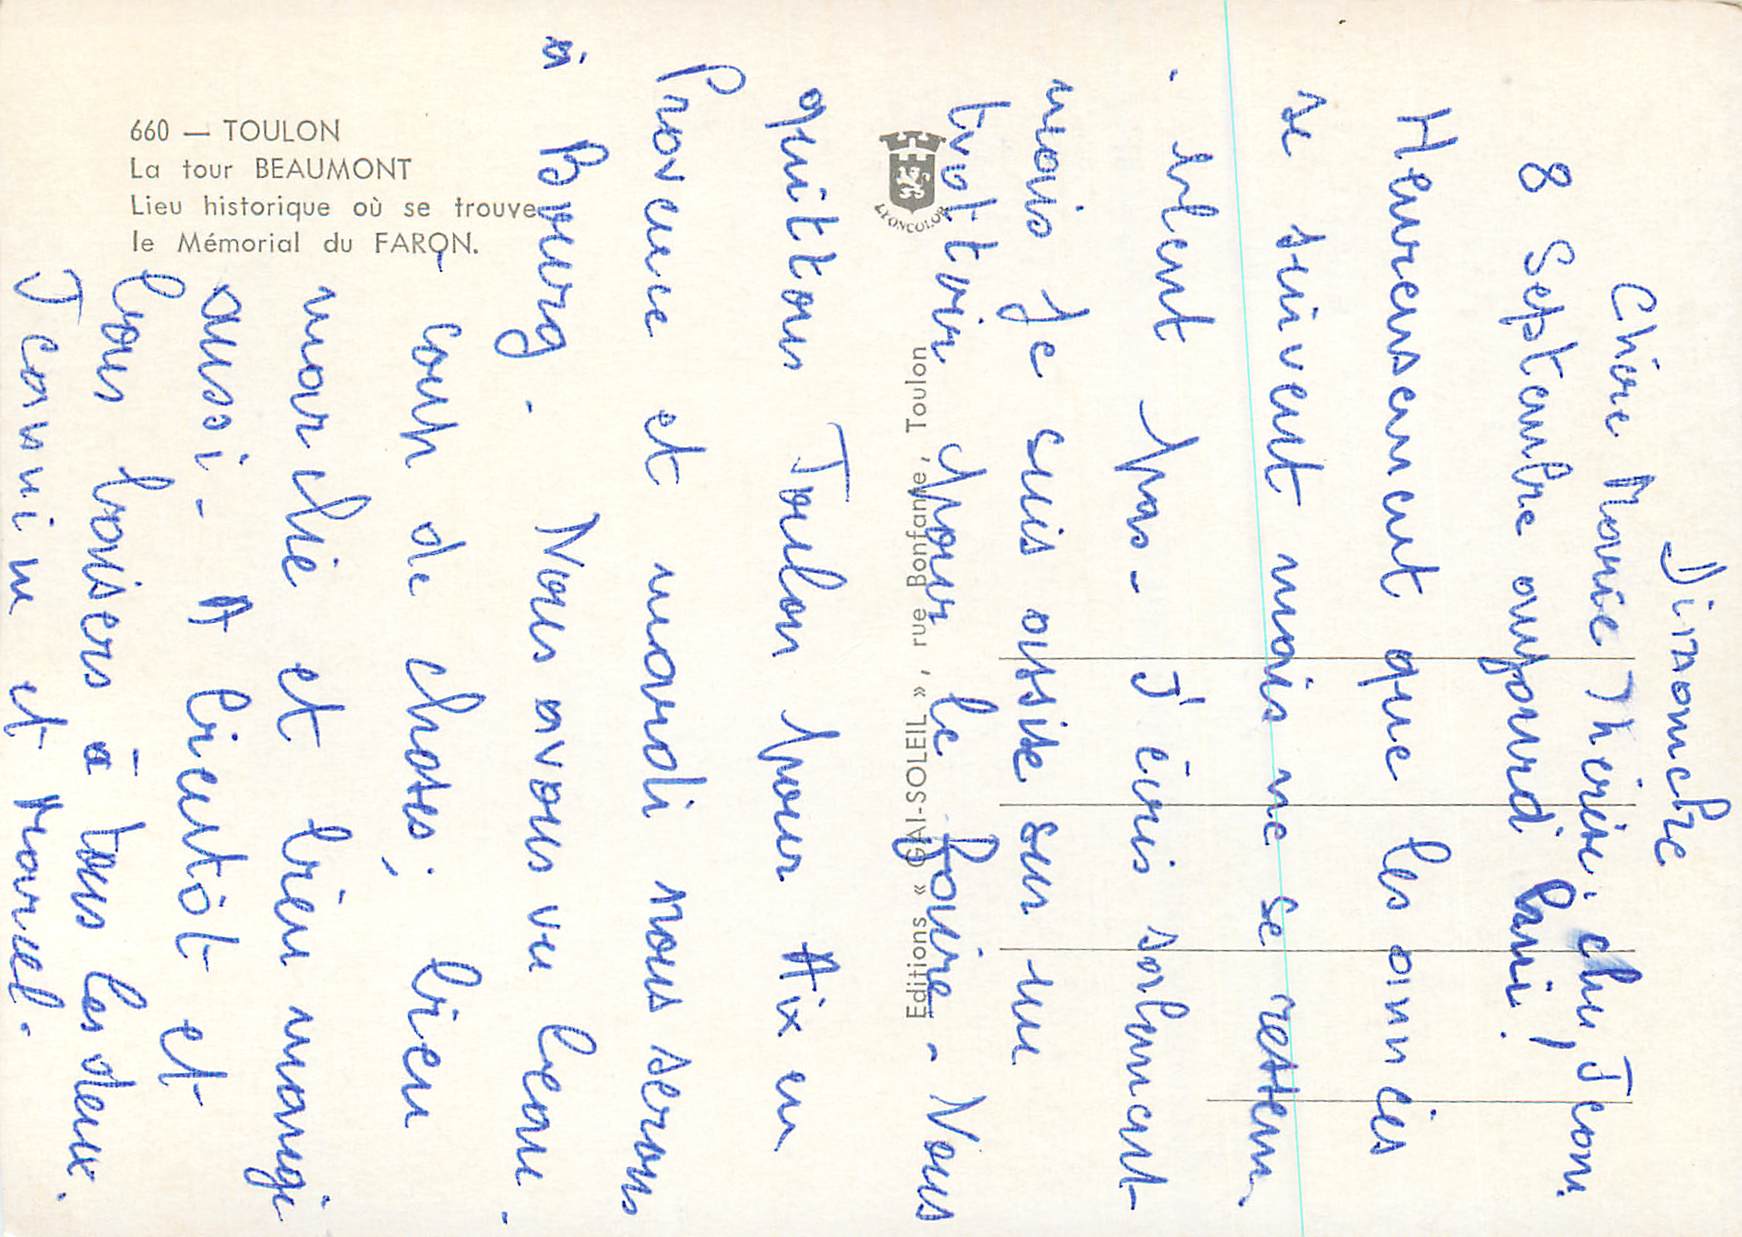 660 — TOULON
La tour BEAUMONT
Lieu historique où se trouve
le Mémorial du FARON.
LYONCOLOR
Editions « GAI-SOLEIL », rue Bonfante, Toulon
Dimanche
Chère Marie Thérèse, cher Jean
8 Septembre aujourd'hui!
Heureusement que les années
se suivent mais ne se ressem-
-blent pas - J'écris salement
mais je suis assise sur un
trottoir pour le faire - Nous
quittons Toulon pour Aix en
Provence et mardi nous serons
à Bourg. Nous avons vu beau-
-coup de choses; bien
marché et bien mangé
aussi - A bientôt et
bons baisers à tous les deux.
Jeanine et Marcel.